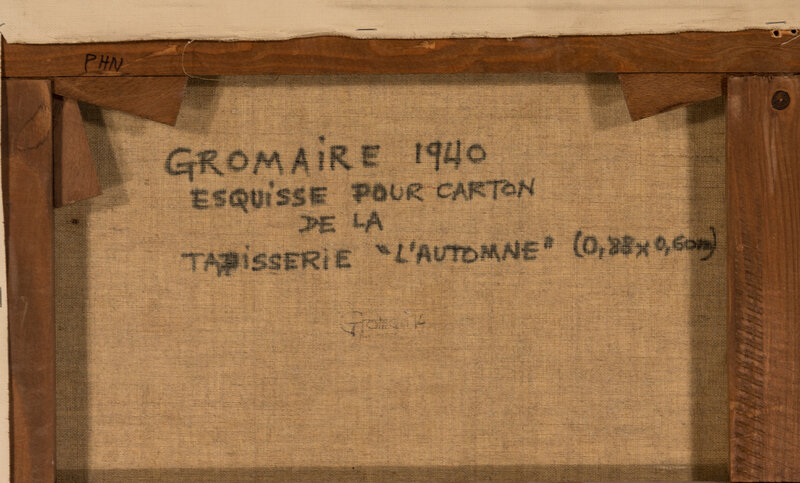 PHN
GROMAIRE 1940
ESQUISSE POUR CARTON
DE LA
TAPISSERIE "L'AUTOMNE" (0,88 x 0,60m)
Gromaire